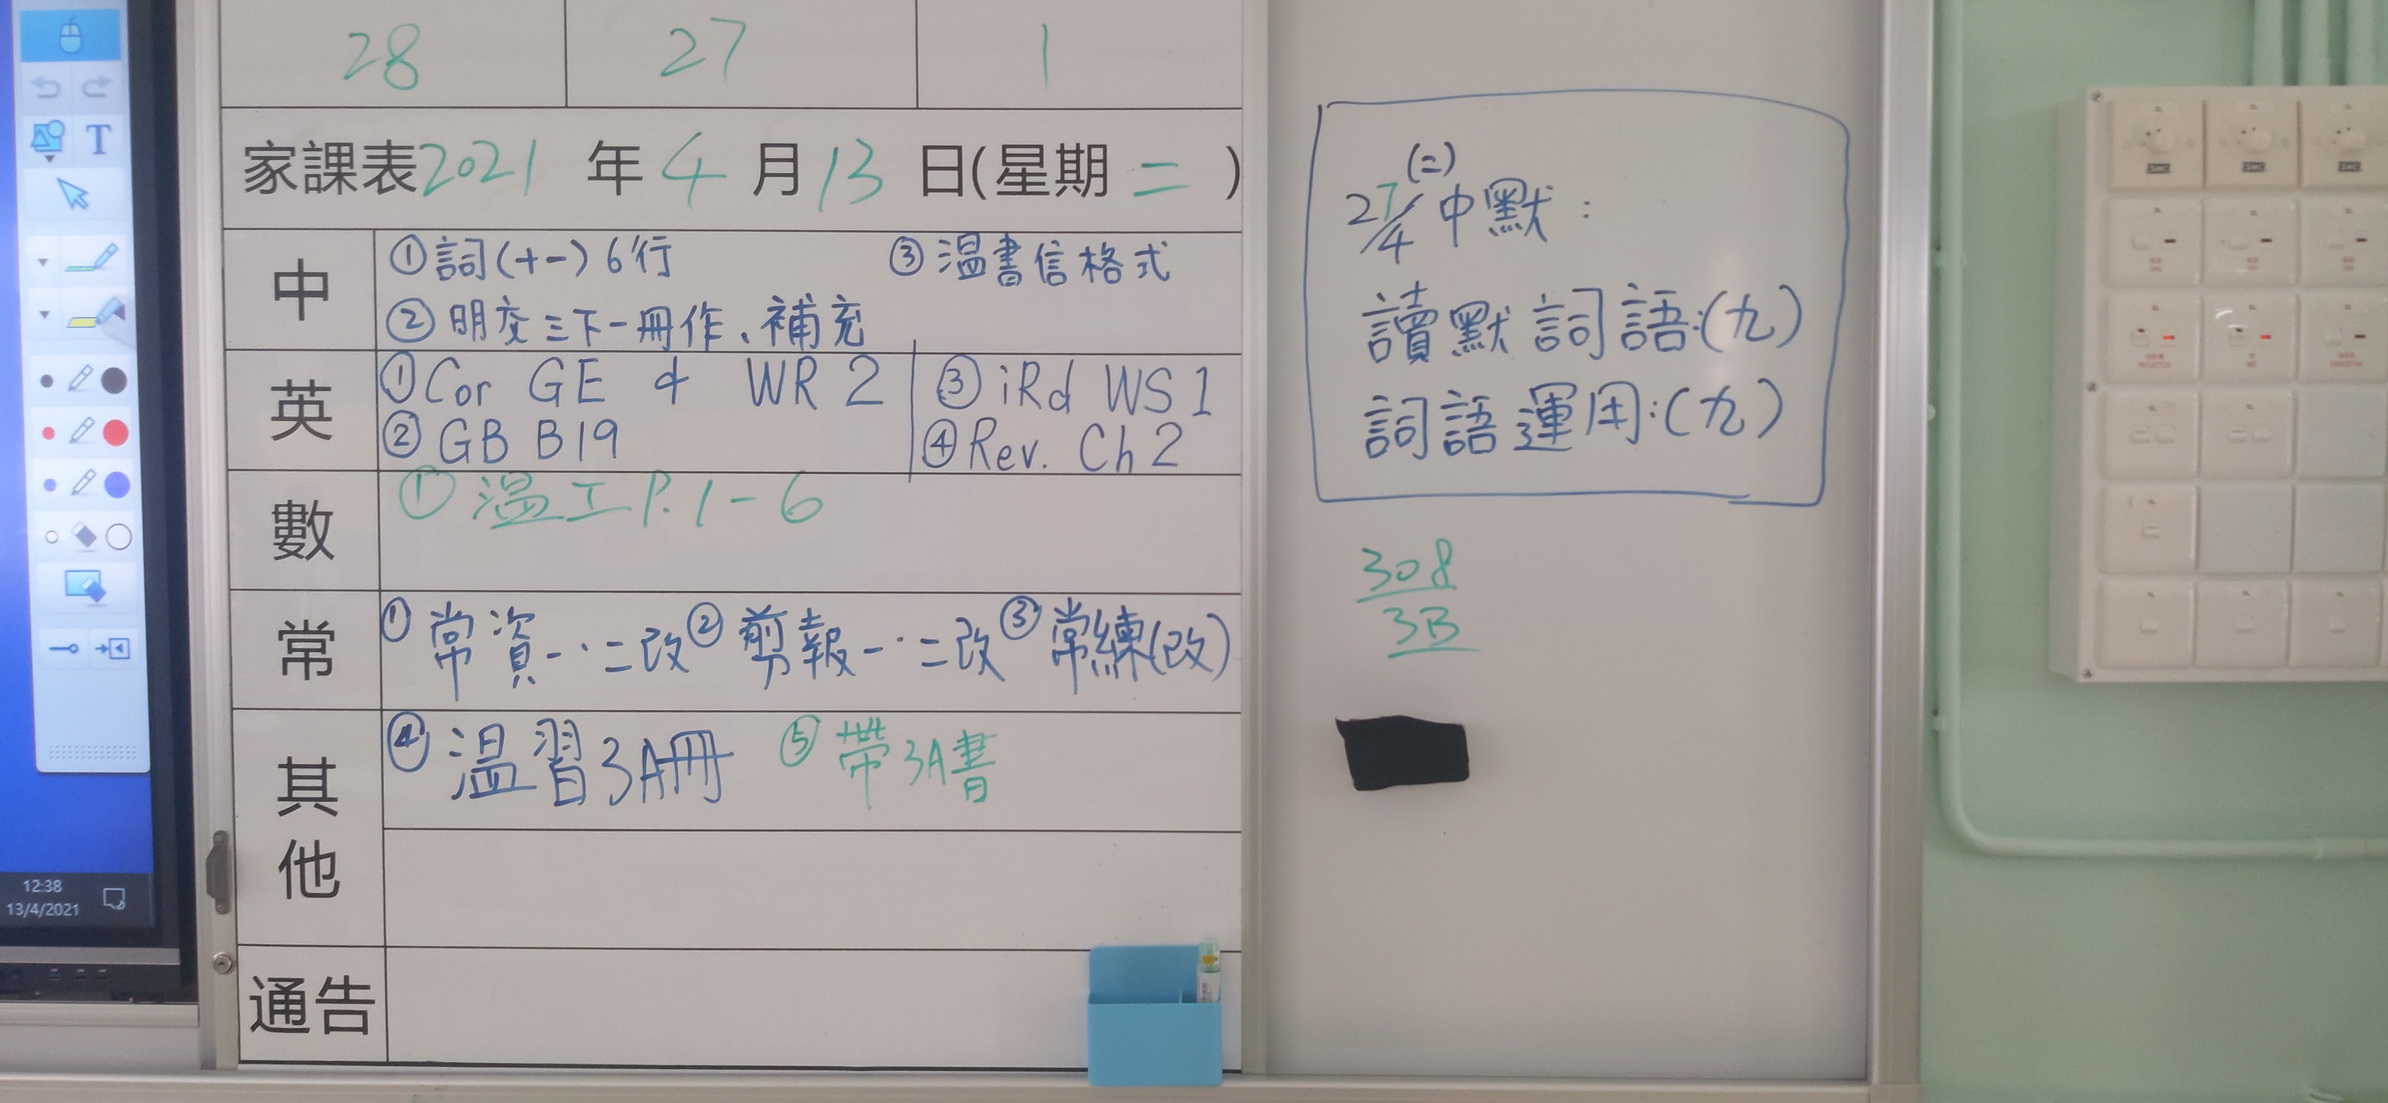 28 27 1
家課表2021年4月13日(星期二)
中
①詞(十一)6行 ③溫書信格式
②明交三下一冊作、補充
英
①Cor GE & WR 2 ③iRd WS 1
②GB B19 ④Rev. Ch 2
數
①溫工P.1-6
常
①常資一.二改②剪報一.二改③常練(改)
其他
④溫習3A冊 ⑤帶3A書
通告
(二)
27/4中默:
讀默詞語:(九)
詞語運用:(九)
308
3B
T
12:38
13/4/2021